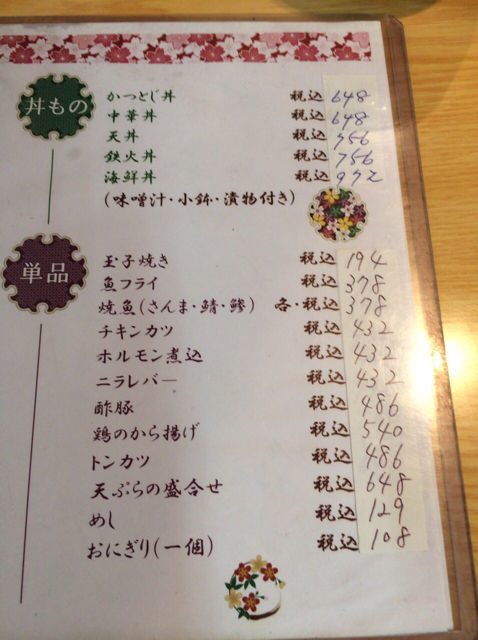 丼もの
かつとじ丼 税込 648
中華丼 税込 648
天丼 税込 756
鉄火丼 税込 756
海鮮丼 税込 972
(味噌汁・小鉢・漬物付き)
単品
玉子焼き 税込 194
魚フライ 税込 378
焼魚(さんま・鯖・鯵) 各・税込 378
チキンカツ 税込 432
ホルモン煮込 税込 432
ニラレバー 税込 432
酢豚 税込 486
鶏のから揚げ 税込 540
トンカツ 税込 486
天ぷらの盛合せ 税込 648
めし 税込 129
おにぎり(一個) 税込 108